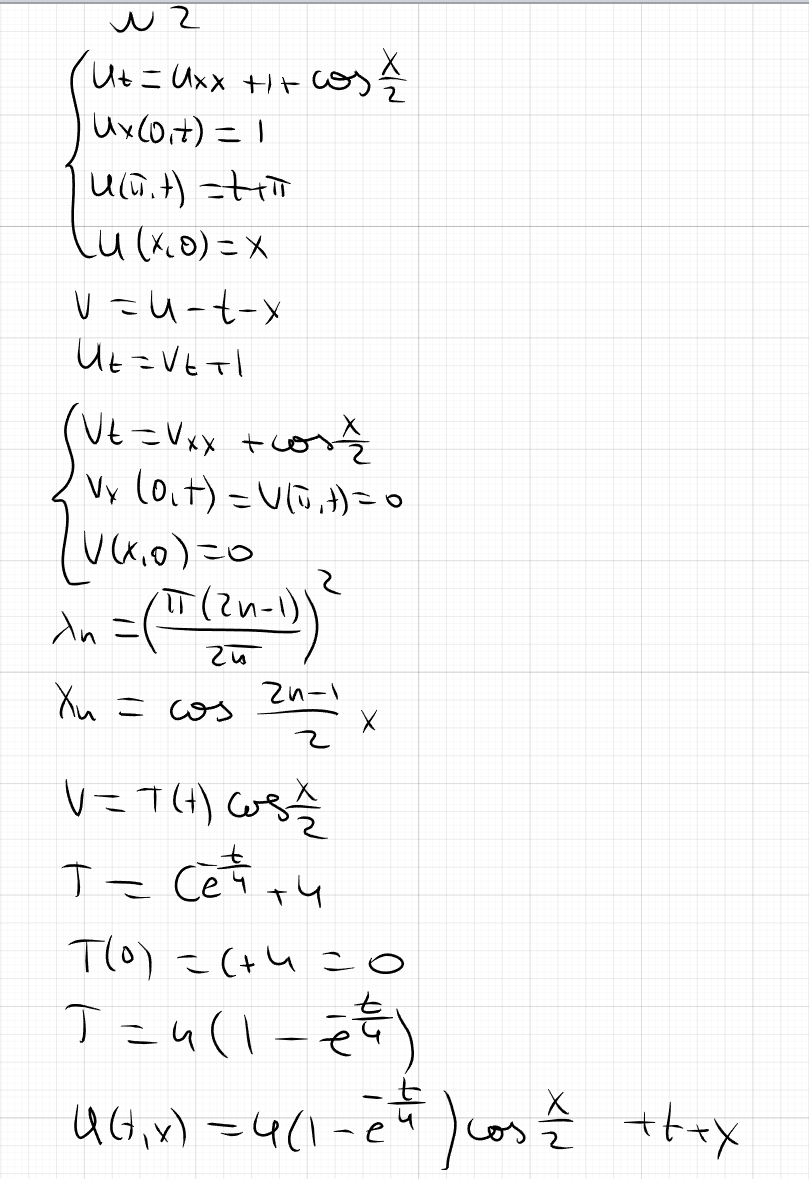 N 2
u_t = u_xx + 1 + cos x/2
u_x(0,t) = 1
u(π,t) = t+π
u(x,0) = x
v = u - t - x
u_t = v_t + 1
v_t = v_xx + cos x/2
v_x(0,t) = v(π,t) = 0
v(x,0) = 0
λ_n = (π(2n-1)/2π)^2
X_n = cos (2n-1)/2 x
v = T(t) cos x/2
T = Ce^(-t/4) + 4
T(0) = C+4 = 0
T = 4(1 - e^(-t/4))
u(t,x) = 4(1 - e^(-t/4)) cos x/2 + t + x